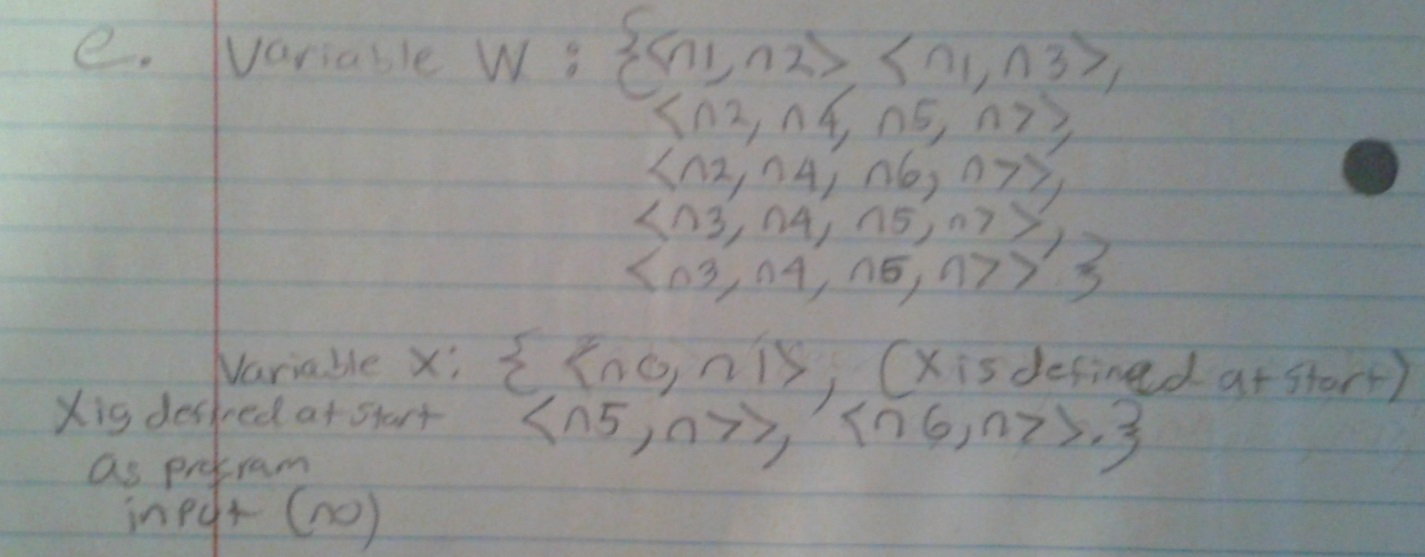 e. Variable W : {<n1, n2> <n1, n3>,
<n2, n4, n5, n7>,
<n2, n4, n6, n7>,
<n3, n4, n5, n7>,
<n3, n4, n6, n7> }
Variable X: { <n0, n1>, (X is defined at start)
X is defined at start <n5, n7>, <n6, n7>. }
as program
input (n0)